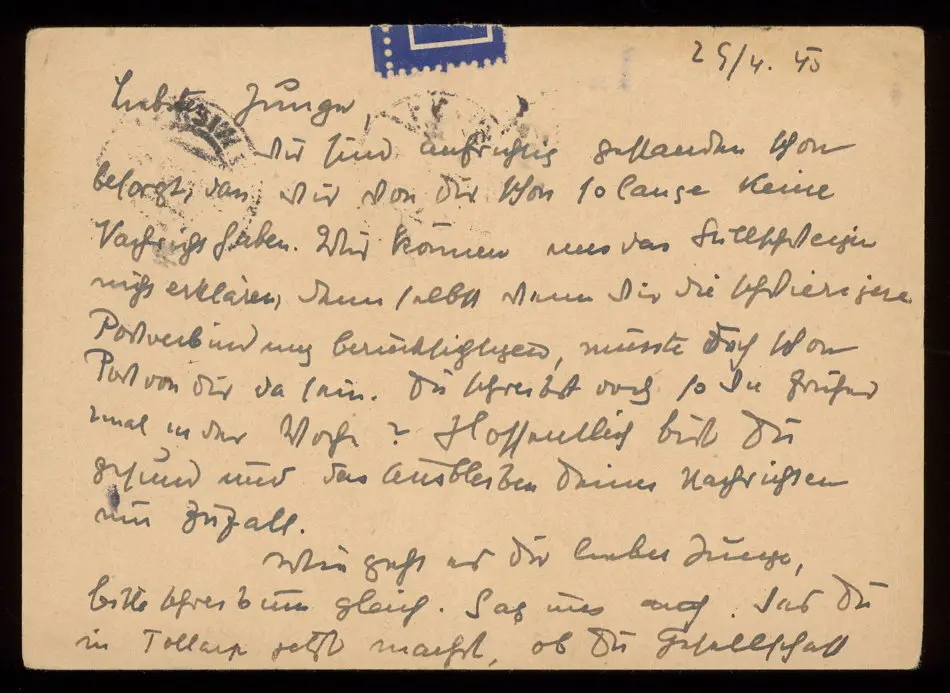 29/4. 40
Liebster Junge,
Wir sind aufrichtig gestanden schon
besorgt, dass wir von Dir schon so lange keine
Nachricht haben. Wir können uns das Stillschweigen
nicht erklären, denn selbst wenn wir die schwierigere
Postverbindung berücksichtigen, müsste doch schon
Post von Dir da sein. Du schreibst doch so wie früher
mal in der Woche? Hoffentlich bist Du
gesund und das Ausbleiben Deiner Nachrichten
nur Zufall.
Wie geht es Dir lieber Junge,
bitte schreib uns gleich. Sag uns auch was Du
in Tollarp jetzt machst, ob Du Gesellschaft